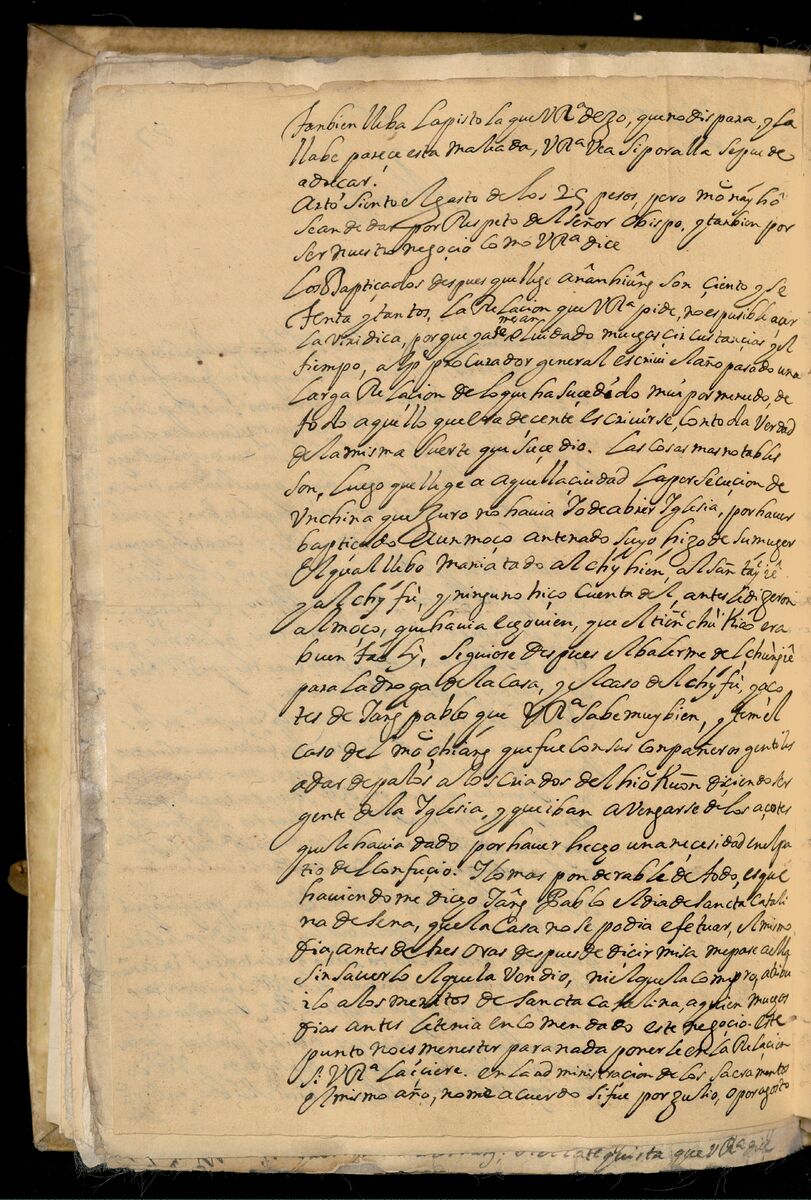 tanbien lleba la pistola que VRª dezo, que no dispara, y la
llabe parece esta maliada, VRª vea si por alla se puede
adreçar.
Arto siento el gasto de los 25 pesos, pero mo nay hô
se an de dar por Respeto del señor obispo, y tanbien por
ser nuestro negocio como VRª dice
Los Bapticados despues que llege a nânhiûng son çiento y se
tenta y tantos, la Relacion que VRª pide, no es pusible açer
la viridica, porque ya se me an olvidado muegas circustançias y el
tiempo, al pe procurador general escrivi el año pasado una
larga Relacion de lo que ha sucedido mui por menudo, de
todo aquello que era decente escrivirse, con toda verdad
de la misma suerte que suçedio. Las cosas mas notables
son, luego que llege a aquella ciudad la persecuçion de
un china que Zuro no havia yo de abrir Iglesia, por haver
bapticado a un moço antenado suyo hizo de su muger
el qual llebo maniatado al chý hién, al sân
y al chý fù, y ninguno hiço cuenta del, antes le dizeron
al moço, que havia legouien, que el tiên chù Kiao era
buen taoly, siguiose despues el balerme del
para la droga de la casa, y el caso del chý fù, y aço
tes de Iang pablo que VRª sabe muy bien, y tem el
caso del mô chiâng que fue con sus conpañeros gentiles
a dar de palos a los criados del hiô Kuôn diciendo ser
gente de la Iglesia, y que iban a vengarse de los açotes
que le havia dado por haver hecgo una neçesidad en el pa
tio del confuçio. Y lo mas ponderable de todo, es que
haviendome diego Iang Pablo el dia de Sancta Catali
na de Sena, que la casa no se podia efetuar, el mismo
dia, antes de tres oras despues de dicir misa me pase a ella
sin saverlo el que la vendio, ni el que la compro, atibu
ilo a los meritos de Sancta Catalina, a quien muegos
dias antes le tenia encomendado este negocio. Este
punto no es menester para nada ponerle en la Relaçion
si VRª la içiere. en la administracion de los sacramentos
el mismo año, no me acuerdo si fue por zulio, o por agosto
que VRª diçe